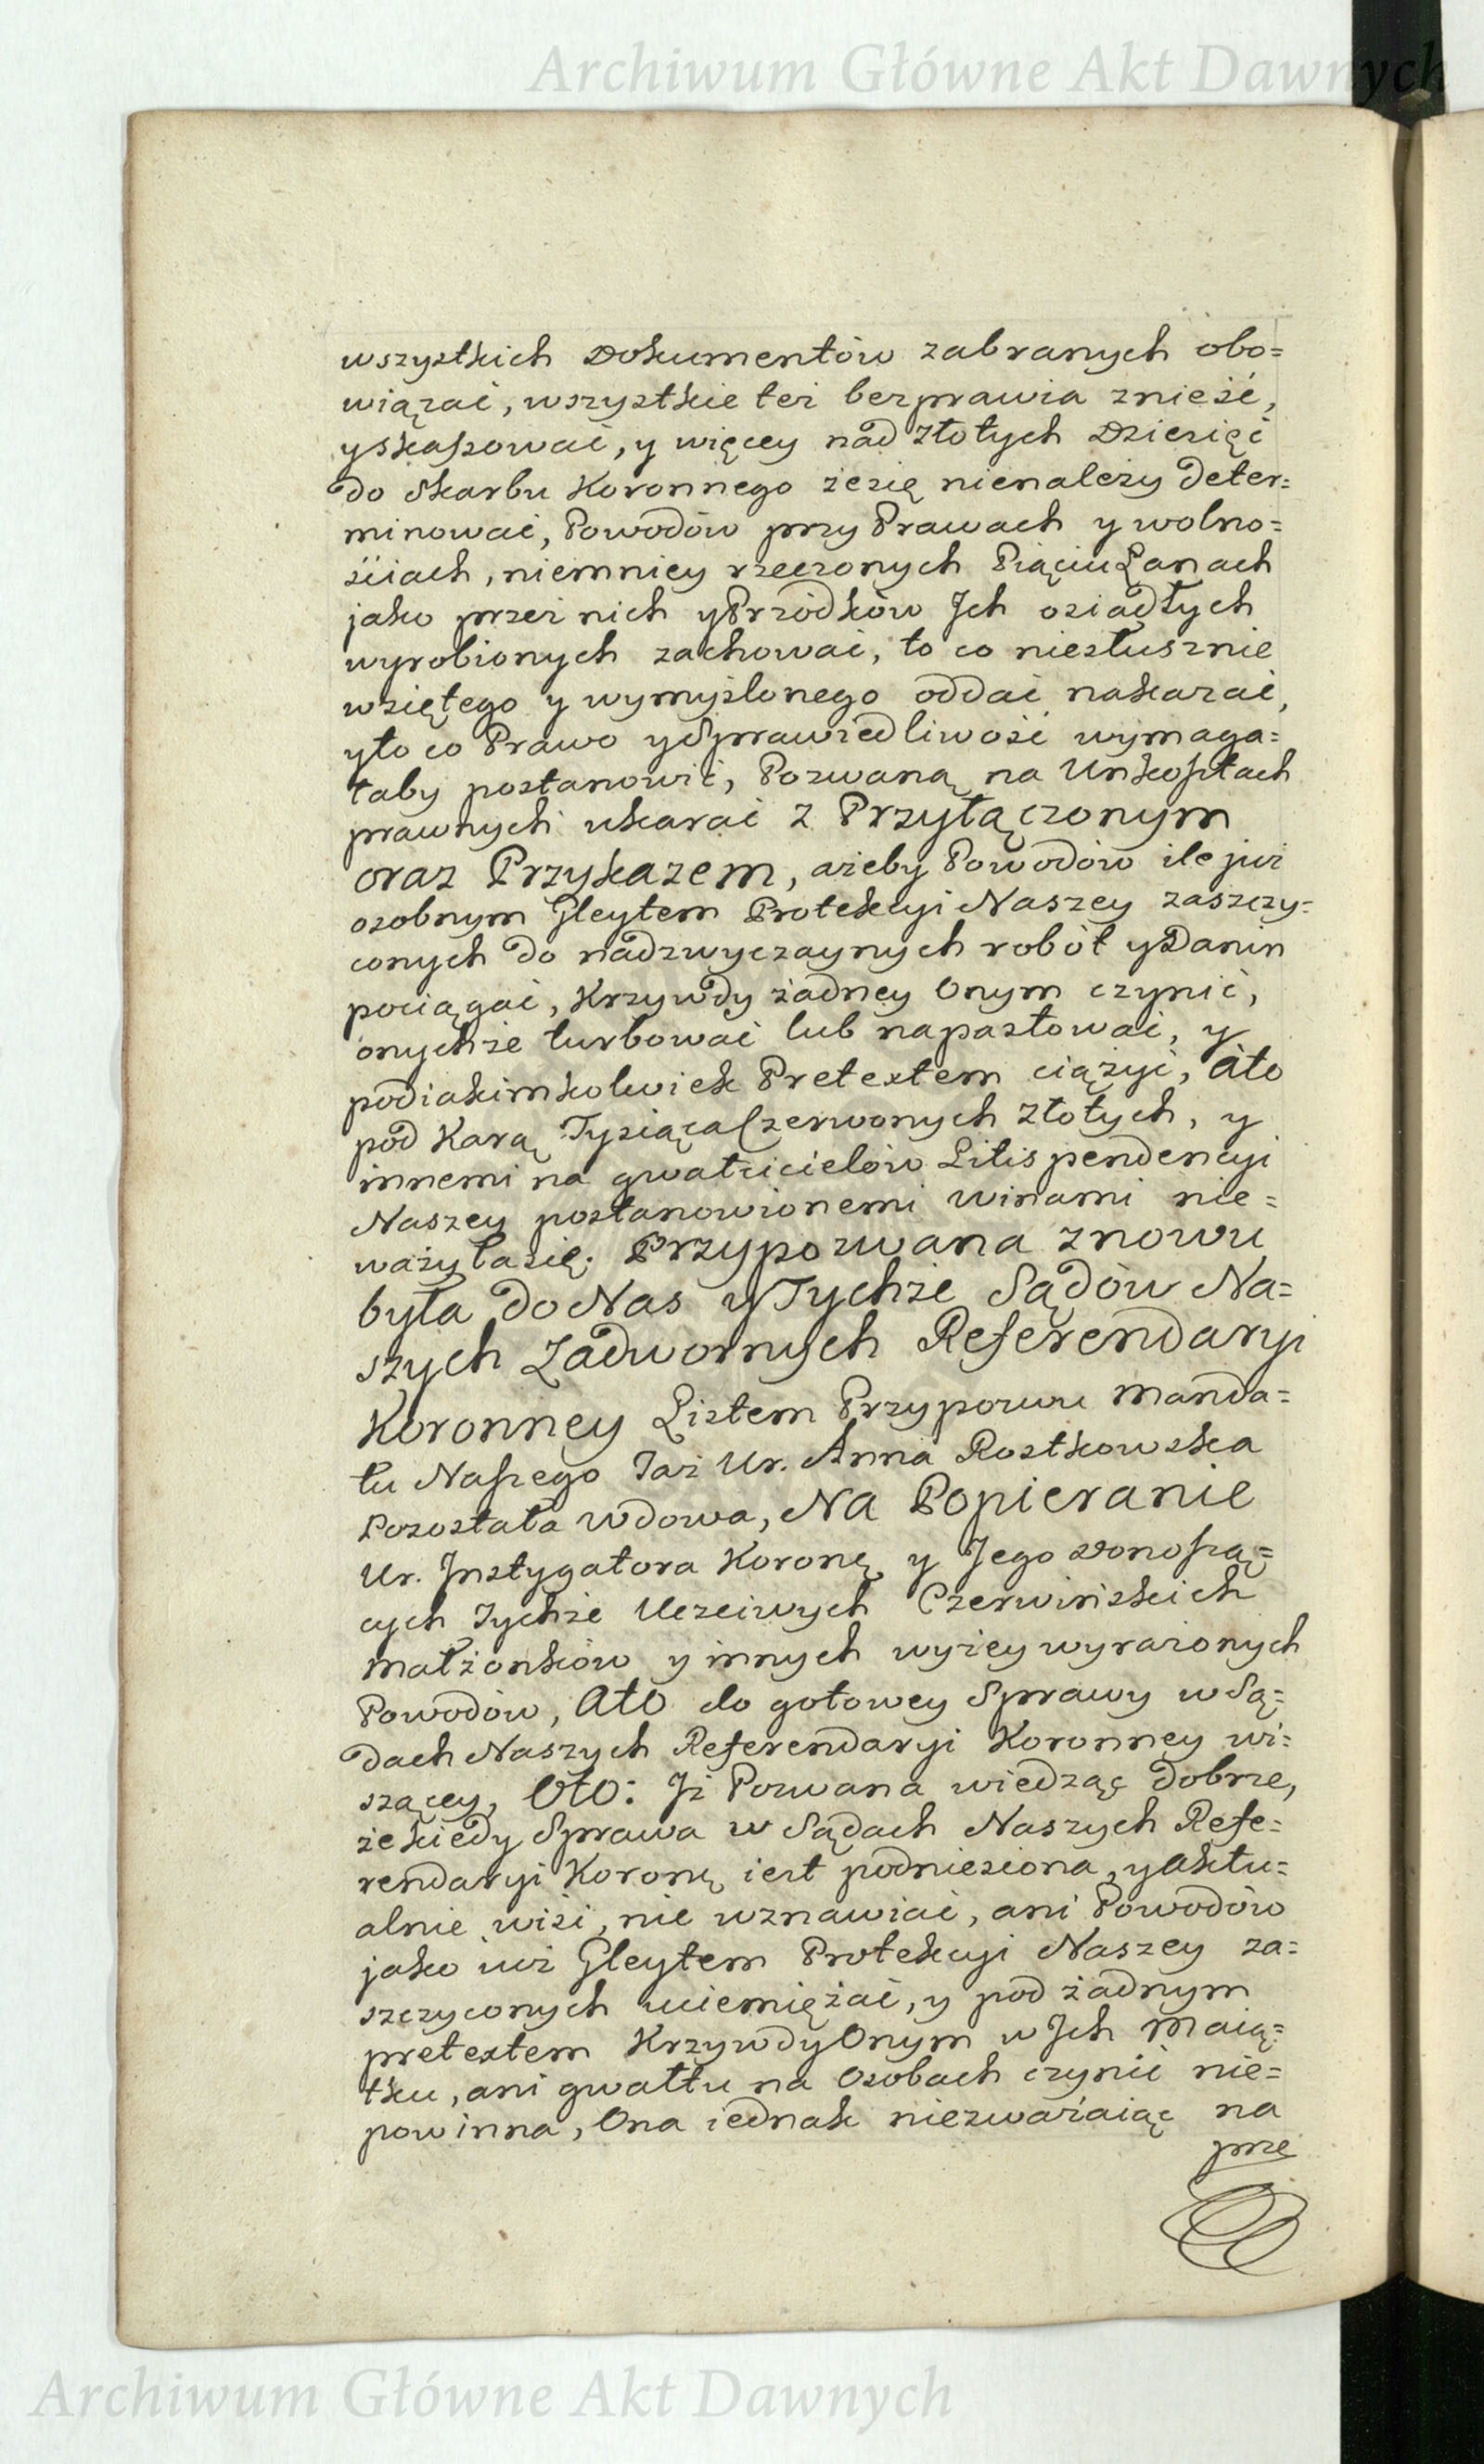 Archiwum Główne Akt Dawnych
wszystkich Dokumentów zabranych obo=
wiązać, wszystkie też bezprawia znieść,
yskassować, y więcey nad Złotych Dziesięć
do Skarbu Koronnego żesię nienależy deter=
minować, Powodów przy Prawach y wolno=
ściach, niemniey rzeczonych Piąciu Łanach
jako przez nich y Przodków Jch osiadłych
wyrobionych zachować, to co niesłusznie
wziętego y wymyślonego oddać nakazać,
yto co Prawo y Sprawiedliwość wymaga=
łaby postanowić, Pozwaną na Unkosztach
prawnych ukarać z Przyłączonym
oraz Przykazem, ażeby Powodów ile już
osobnym Gleytem Protekcyi Naszey zaszczy=
conych do nadzwyczaynych robót y Danin
pociągać, Krzywdy żadney Onym czynić,
onychże turbować lub napastować, y
podiakimkolwiek Pretextem ciążyć, áto
pod Karą Tysiąca Czerwonych Złotych, y
innemi na gwałcicielów Litis pendencyi
Naszey postanowionemi winami nie=
ważyłasię. Przypozwana znowu
była do Nas y Tychże Sądów Na=
szych Zadwornych Referendaryi
Koronney Listem Przypozwu Manda=
tu Naszego Taż Ur. Anna Rostkowska
Pozostała Wdowa, Na Popieranie
Ur. Jnstygatora Koronę y Jego Donoszą=
cych Tychże Uczciwych Czerwińskich
Małżonków y innych wyżey wyrażonych
Powodów, Ato do gotowey Sprawy w Są=
dach Naszych Referendaryi Koronney wi=
szącey, Oto: Jż Pozwana wiedząc dobrze,
że kiedy Sprawa w Sądach Naszych Refe=
rendaryi Koronę iest podniesiona, y Aktu=
alnie wisi, nie wznawiać, ani Powodów
jako iuż Gleytem Protekcyi Naszey za=
szczyconych uciemiężać, y pod żadnym
pretextem Krzywdy Onym w Jch Maią=
tku, ani gwałtu na Osobach czynić nie=
powinna, Ona iednak niezważaiąc na
prze
Archiwum Główne Akt Dawnych